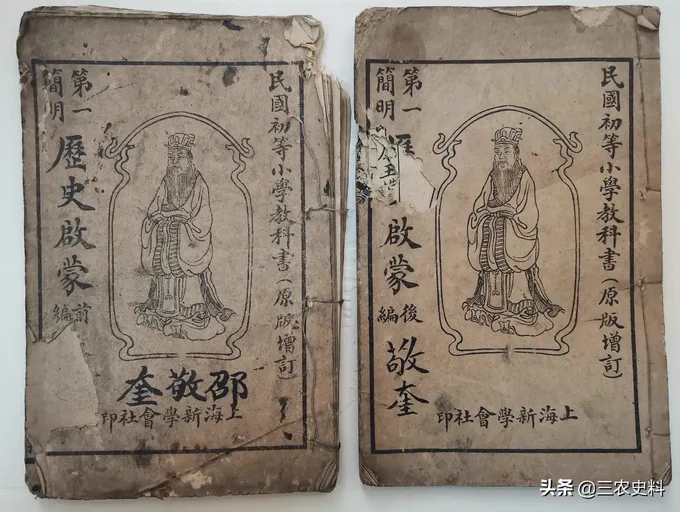 民國初等小學教科書(原版增訂)
第一
簡明
歷史啟蒙
前編
邵敬奎
上海新學會社印
民國初等小學教科書(原版增訂)
第一
簡明
啟蒙
後編
敬奎
上海新學會社印
头条 @三农史料